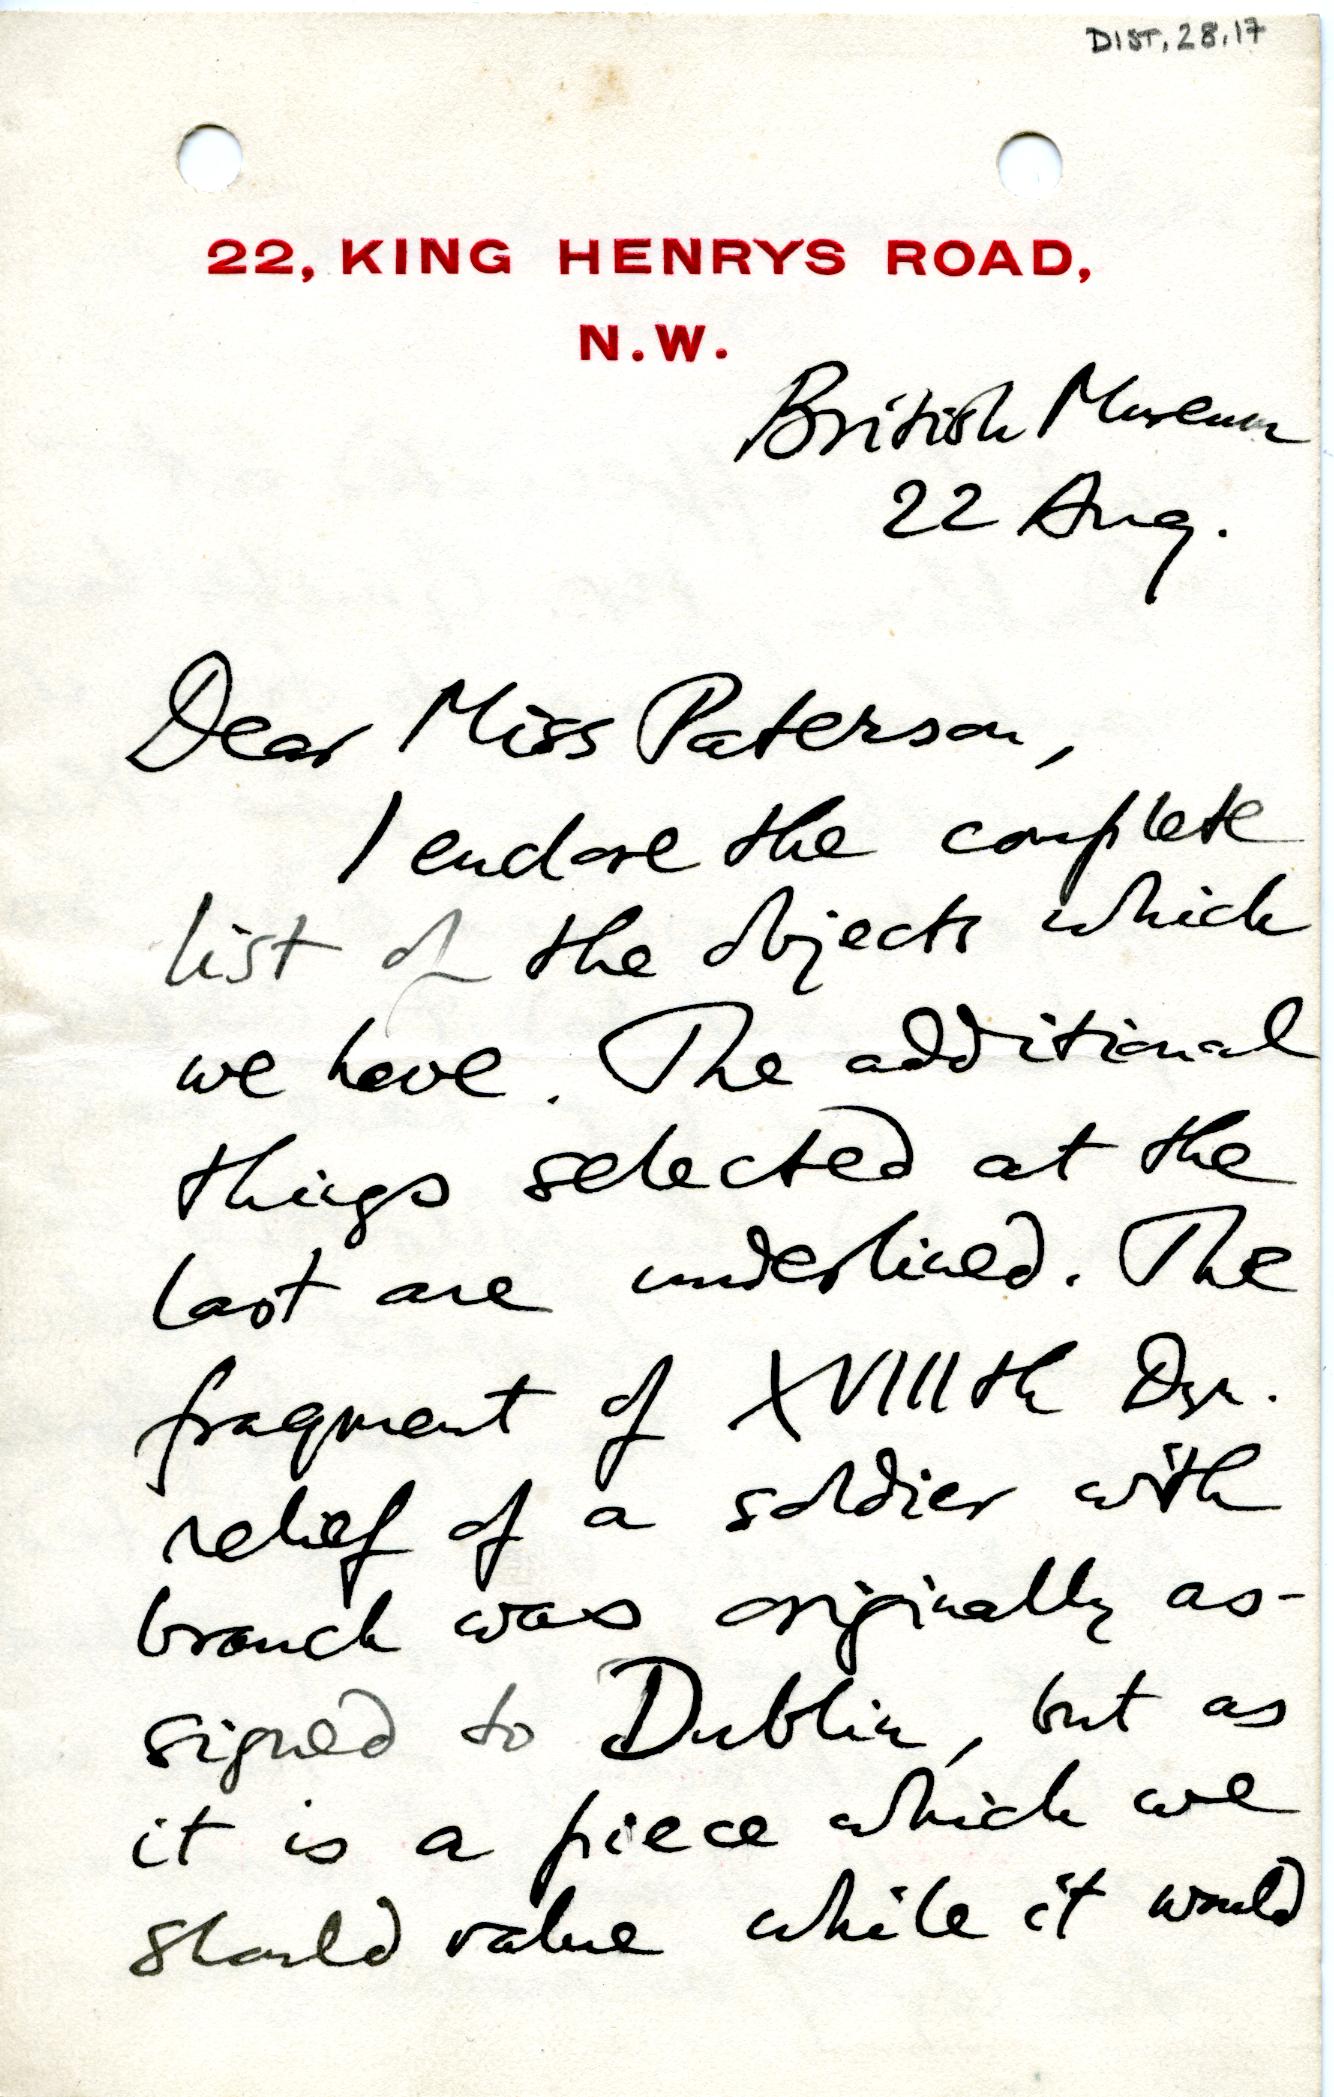 DIST. 28.17
22, KING HENRYS ROAD,
N.W.
British Museum
22 Aug.
Dear Miss Paterson,
I enclose the complete
list of the objects which
we have. The additional
things selected at the
last are underlined. The
fragment of XVIIIth Dyn.
relief of a soldier with
branch was originally as-
signed to Dublin, but as
it is a piece which we
should value while it would